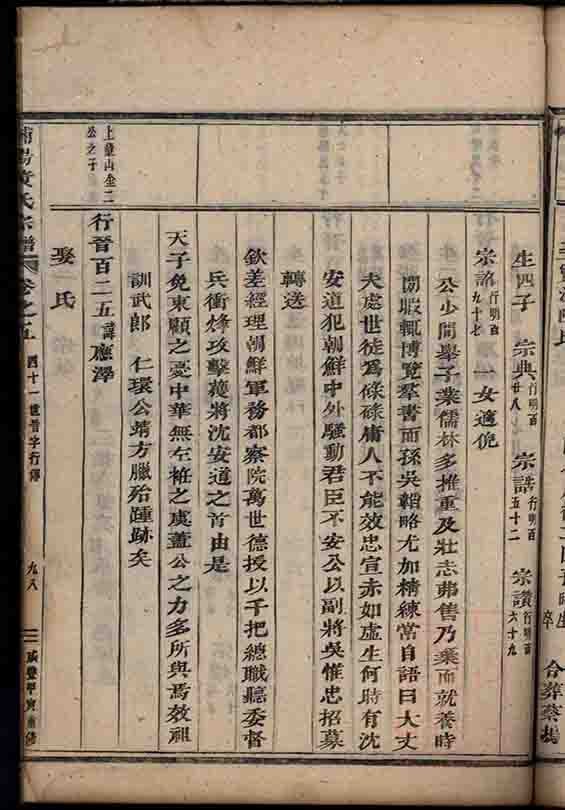 生四子 宗典行明百廿八 宗誥行明百五十二 宗讚行明百六十九
宗詔行明百九十七 一女適倪
公少閒舉子業儒林多推重及壯志弗售乃棄而就養時
閒暇輒博覽羣書而孫吳韜略尤加精練嘗自語曰大丈
夫處世徒為碌碌庸人不能效忠宣赤如虛生何時有沈
安道犯朝鮮中外騷動君臣不安公以副將吳惟忠招募
轉送
欽差經理朝鮮軍務都察院萬世德授以千把總職聽委督
兵衝烽攻擊獲將沈安道之首由是
天子免東顧之憂中華無左袵之虞蓋公之力多所與焉效祖
訓武郎 仁環公靖方臘殆踵跡矣
上章山金二公之子
行晉百二五諱應澤
娶 氏
黃氏宗譜 卷之五 四十一世晉字行傳 九八 咸豐甲寅重修
合葬蔡塢